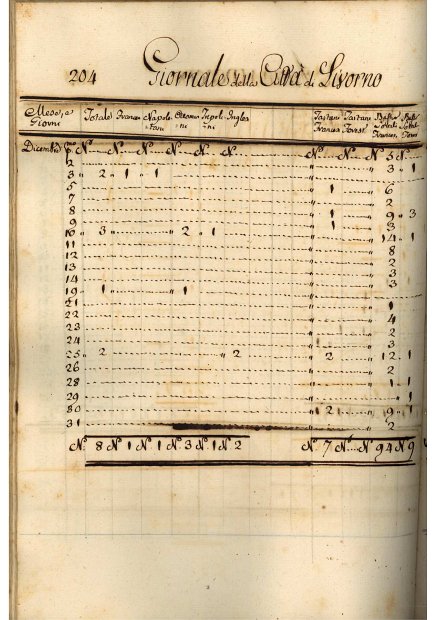 204 Giornale della Città di Livorno
Mese, e Giorni Totale Francesi Napoli-tani Ottoma-ni Inglesi
Toscani Francesi Toscani
Dicembre N. N. N. N. N. N. N. N. N. 5 N.
2
3 2 1 1 3 1
5 1 6
7 2
8 1 9 3
9 1 3
10 3 2 1 14 1
11 8
12 2
13 3
14 3
19 1 1
21 1
22 4
23 2
24 3
25 2 2 2 12 1
26 2
28 1 1
29 1
30 2 9 1
31 2
N. 8 N. 1 N. 1 N. 3 N. 1 N. 2 N. 7 N. N. 94 N. 9